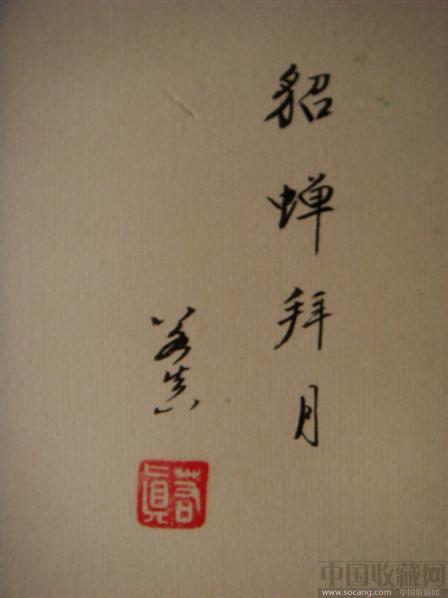 貂蝉拜月
若真
若眞
中国收藏网
www.socang.com 中国收藏网